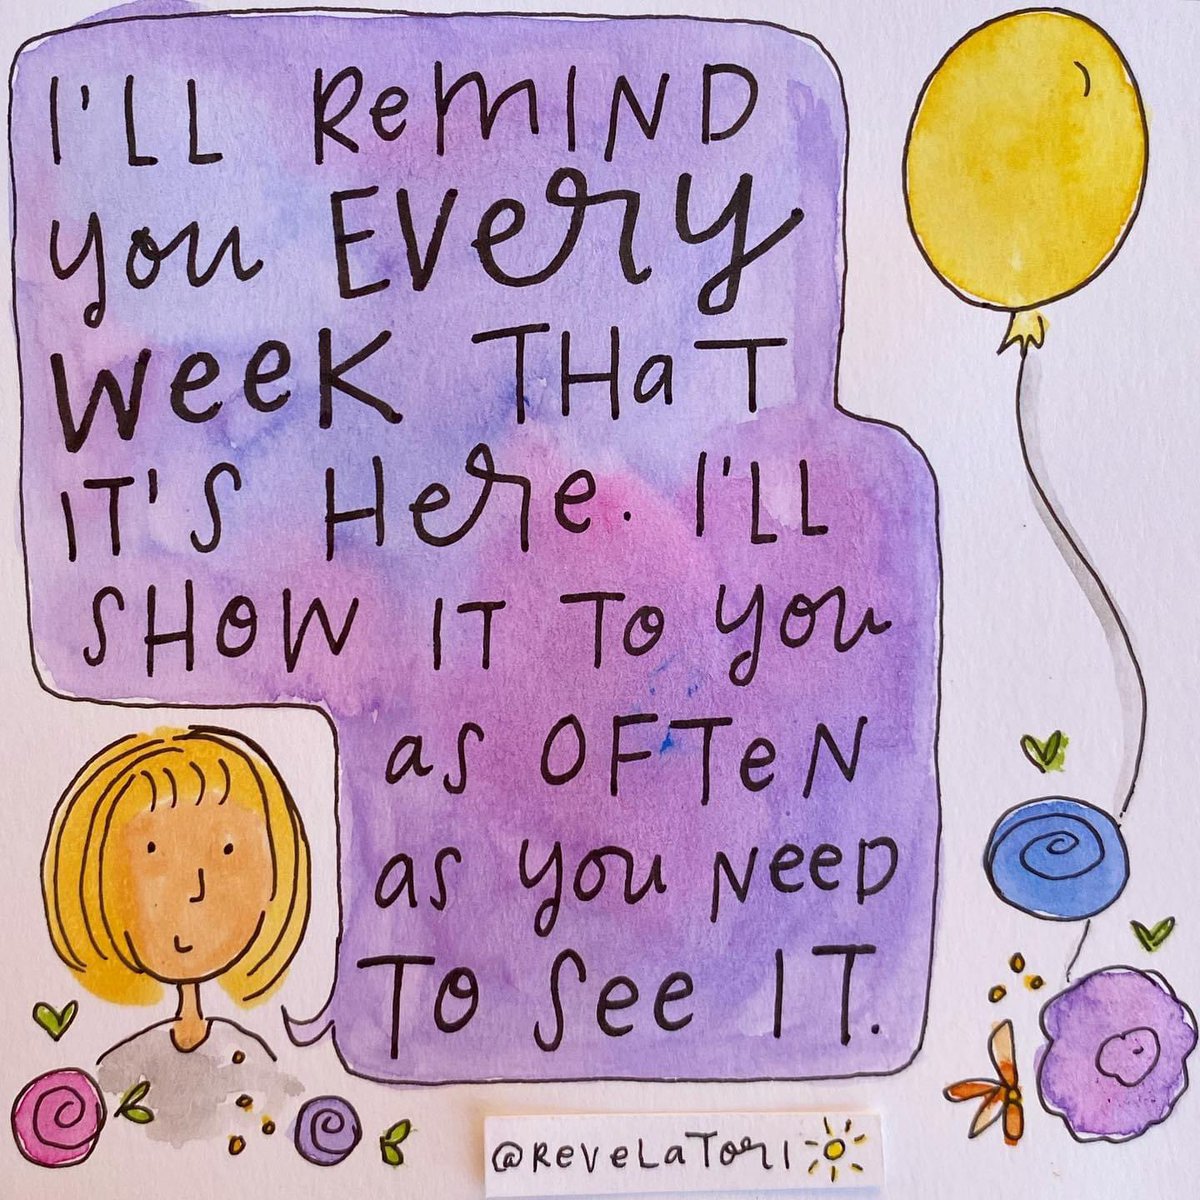 I'LL ReMIND
you EVery
week THaT
IT'S Here. I'LL
SHOW IT TO you
as OFTeN
as you NeeD
TO See IT.
@ReVeLaTORI